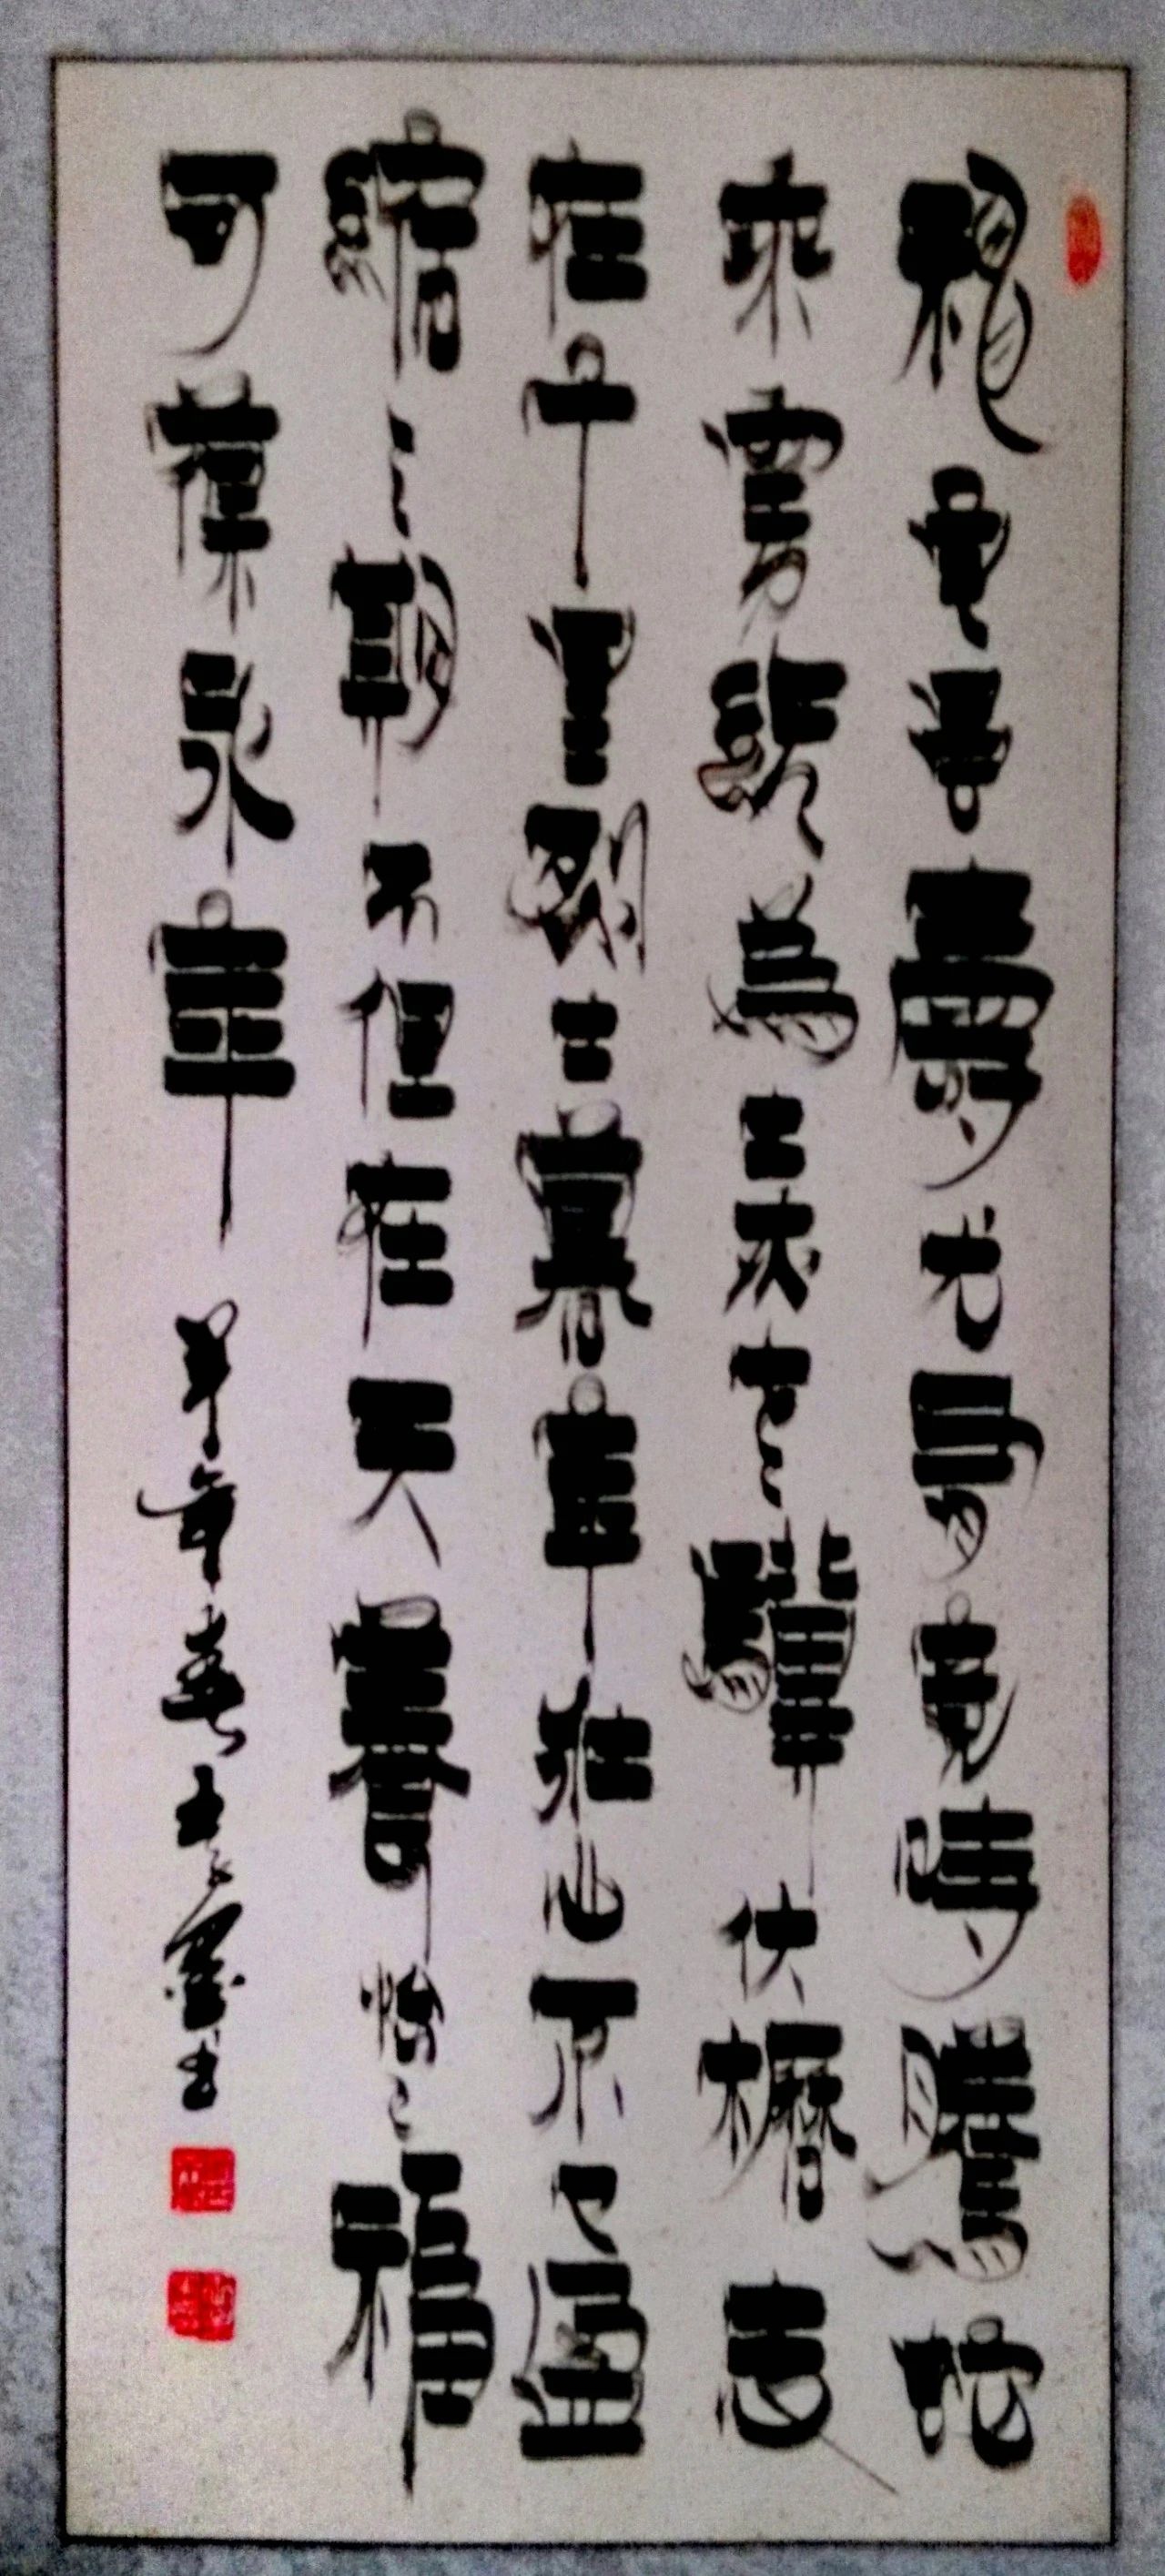 神龟虽壽尤有竟時騰蛇
乘雾終為土灰老驥伏櫪志
在千里烈士暮年壮心不已盈
縮之期不但在天養怡之福
可葆永年 年春墨书